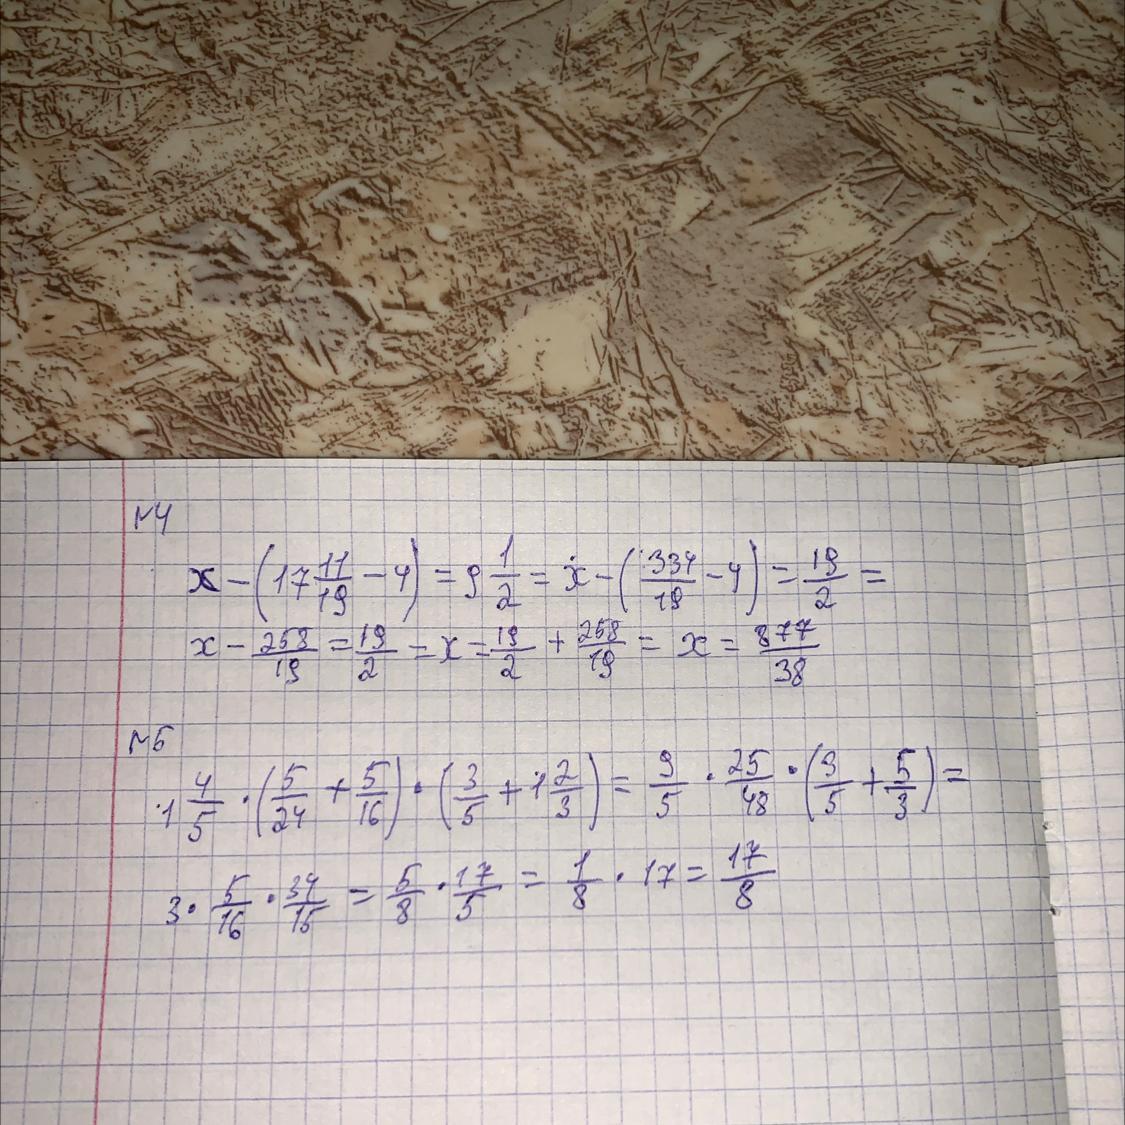 №4
x - (17 11/19 - 4) = 9 1/2 = x - (334/19 - 4) = 19/2 =
x - 258/19 = 19/2 = x = 19/2 + 258/19 = x = 877/38
№5
1 4/5 · (5/24 + 5/16) · (3/5 + 1 2/3) = 9/5 · 25/48 · (3/5 + 5/3) =
3 · 5/16 · 34/15 = 5/8 · 17/5 = 1/8 · 17 = 17/8